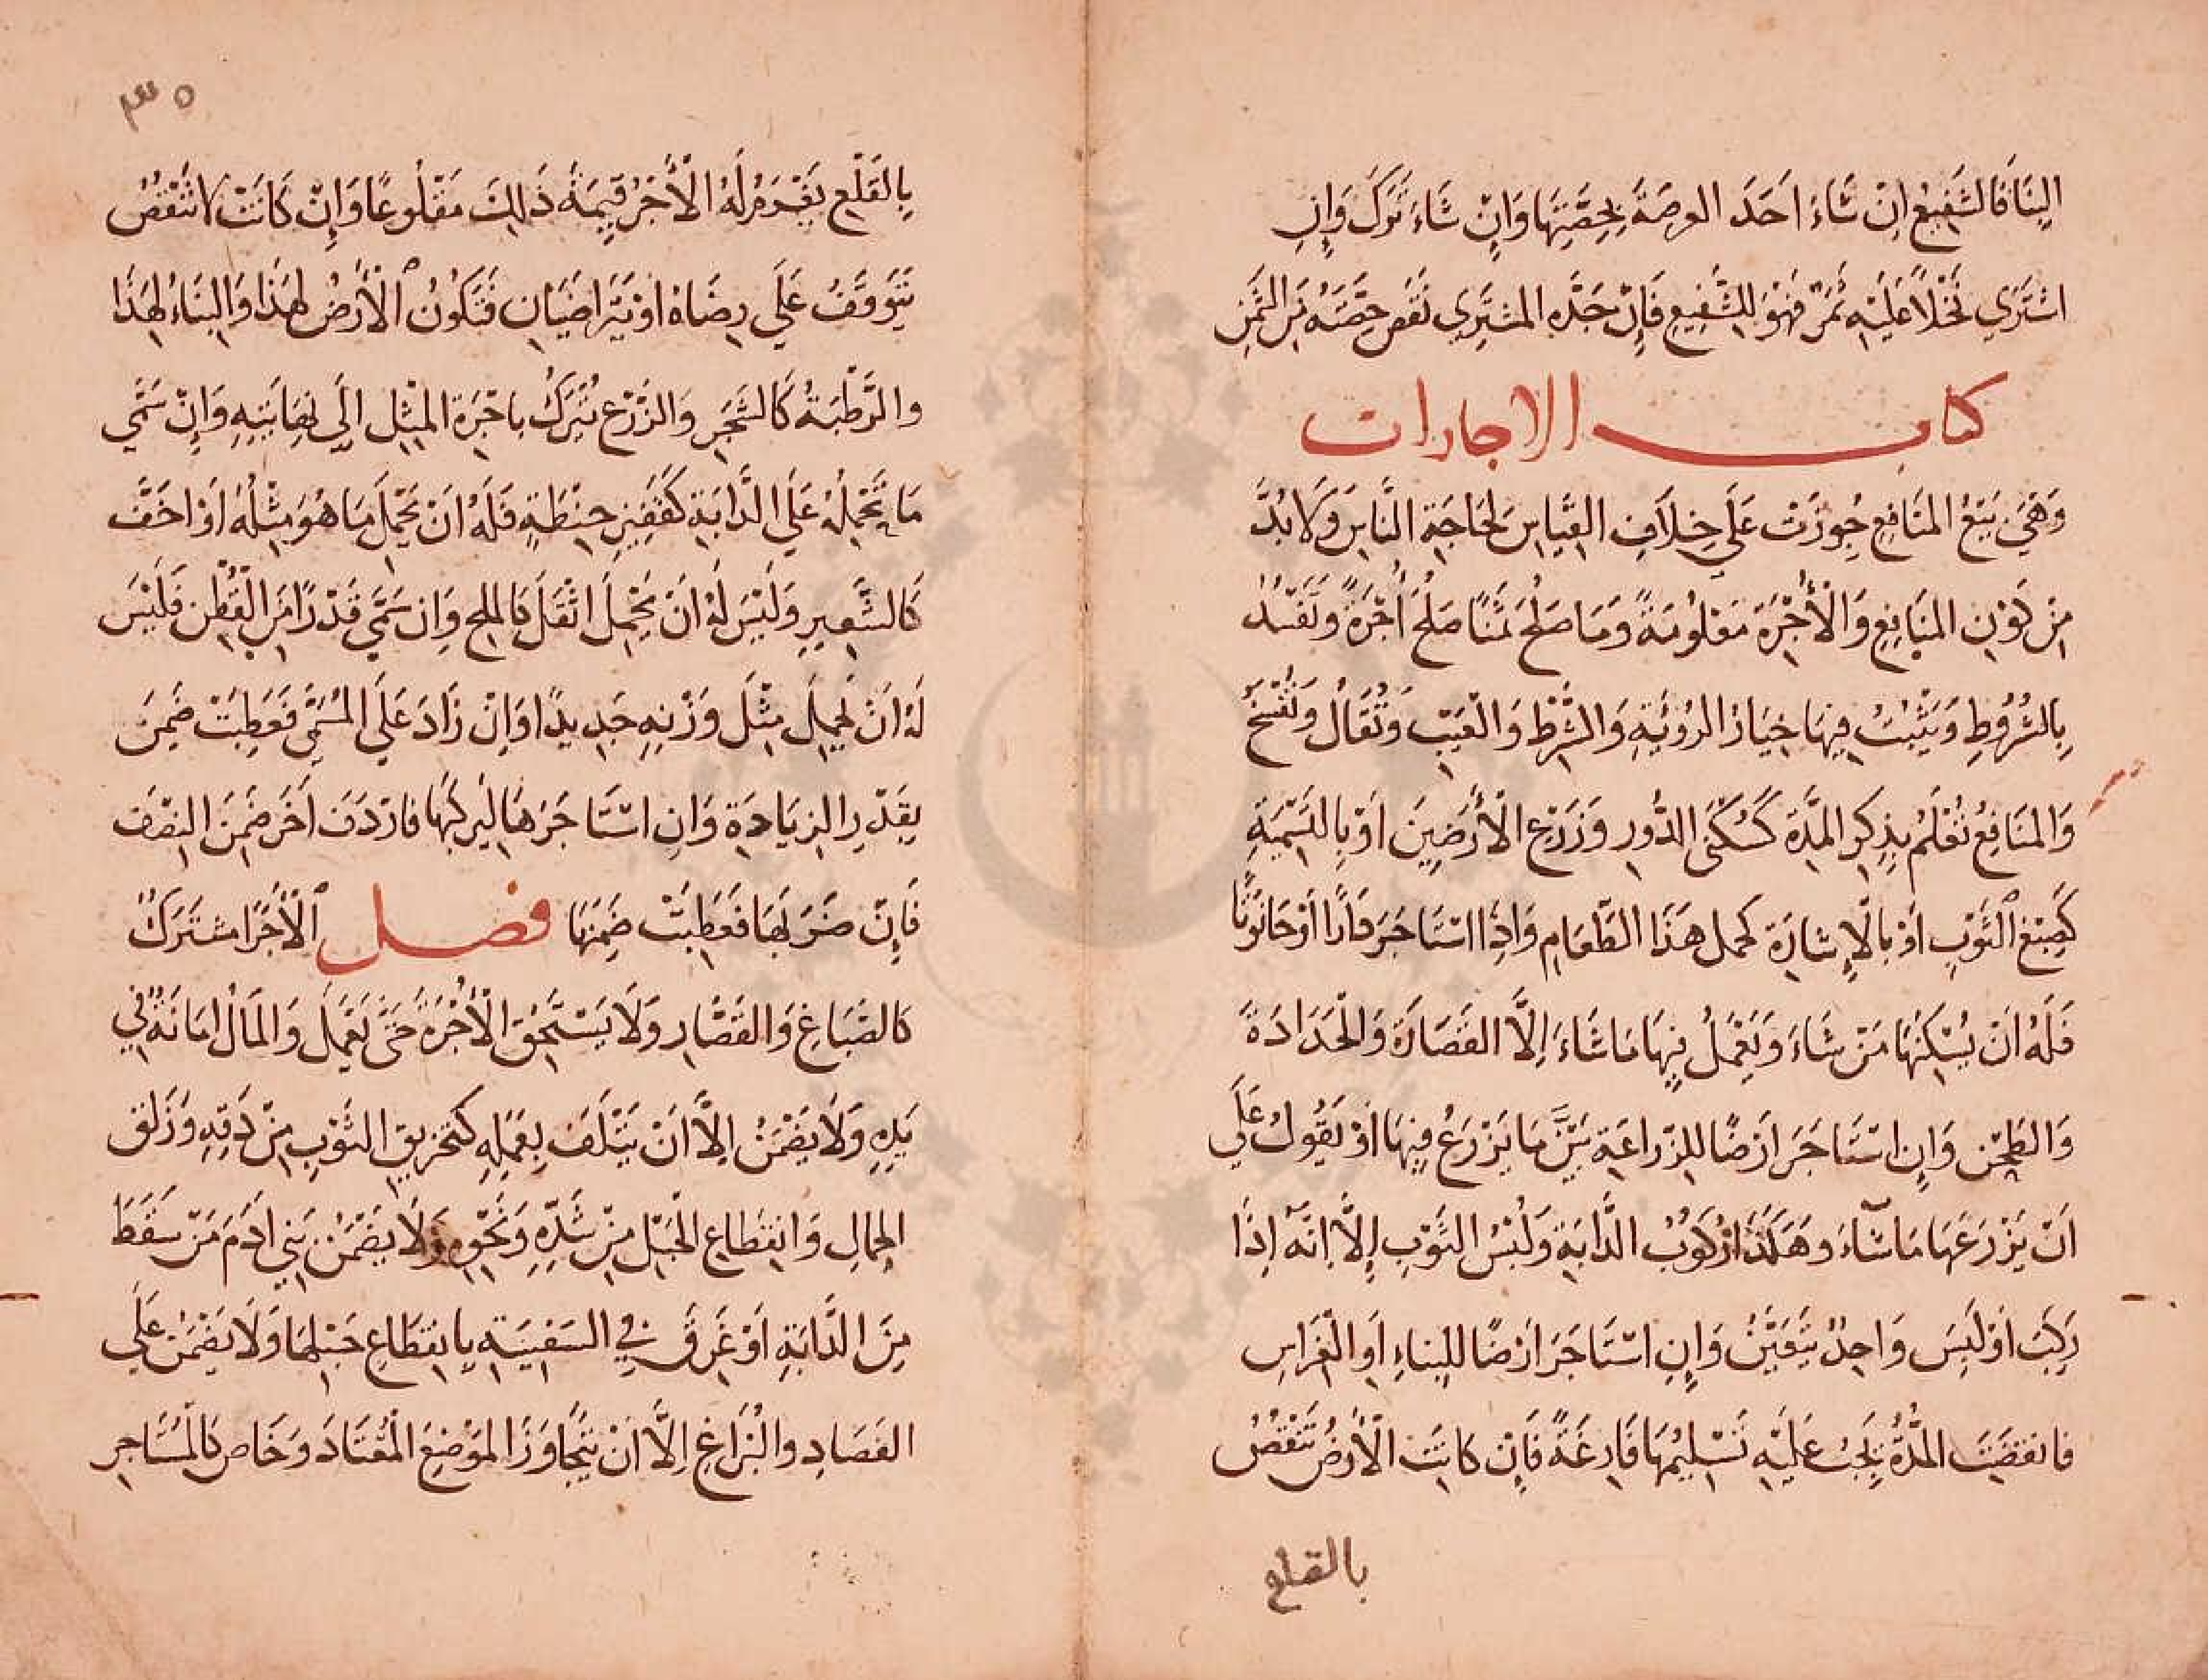 البِنَا فَالشَفِيعُ اِنْ شَاءَ اَخَذَ العرصَةَ بِحِصَّتِهَا وَاِنْ شَاءَ تَرَكَ وَاِنِ
اشتَرَي نَخْلًا عَلَيْهِ ثَمَرٌ فَهُوَ لِلشَّفِيعِ فَاِنْ جَذَّهُ المشتَرِي نَقَصَ حِصَّتَهُ مِنَ الثَّمَنِ
كتاب الاجارات
وَهِيَ بَيْعُ المنَافِعِ جُوِّزَتْ عَلَي خِلَافِ القيَاسِ لحَاجَةِ النَّاسِ وَلَا بُدَّ
مِنْ كَوْنِ المنَافِعِ وَالْأُجْرَةِ مَعْلُومَةً وَمَا صَلُحَ ثَمَنًا صَلُحَ اُجْرَةً وَتَفْسُدُ
بِالشُّرُوطِ وَيَثْبُتُ فِيهَا خِيَارُ الرُؤْيَةِ وَالشَّرْطِ وَالْعَيْبِ وَتُقَالُ وَتُفْسَخُ
وَالمنَافِعُ تُعْلَمُ بِذِكِرِ المدَّةِ كَسُكْنَى الدُّورِ وَزَرْعِ الْأَرَضِينَ اَوْ بِالتَسْمِيَةِ
كَصِبْغِ الثَّوْبِ اَوْ بالْإِشارَةِ كحمل هَذَا الطَّعَامِ وَاِذَا اسْتَاجَرَ دَارًا اَوْ حَانُوتًا
فَلَهُ اَنْ يُسْكِنَهَا مَنْ شَاءَ وَيَعْمَلُ فِيهَا مَا شَاءَ اِلَّا القَصَارَةَ وَالْحَدَادَةَ
وَالطَحْنَ وَاِنِ اسْتَاجَرَ ارْضًا لِلزِّراعَةِ بَيَّنَ مَا يَزْرَعُ فِيهَا اَوْ يَقُولُ عَلَي
اَنْ يَزْرَعَهَا مَا شَآءَ وهَكَذَا رُكُوْبُ الدَّابَةِ وَلُبْسُ الثَوْبِ اِلَّا انَّهُ اِذَا
رَكِبَ اَوْ لَبِسَ وَاحِدٌ تَعَيَّنَ وَاِنِ اسْتَاجَرَ ارْضًا لِلْبِناءِ اَوِ الْغِرَاسِ
فانقضَتِ المدَّةُ يَجِبُ عَلَيْهِ تَسْلِيمُهَا فَارِغَةً فَاِنْ كَانَتِ الْأَرْضُ تَنْقُصُ
بالقلع
٣٥
بِالقَلْعِ يَغْرَمُ لَهُ الْأٓجُرُ قِيمَةَ ذَلِكَ مَقْلُوعًا وَاِنْ كَانَتْ لا تَنْقُصُ
يَتَوَقَّفُ عَلَي رِضَاهُ اَوْ يَتَرَاضَيَانِ فَتَكُوْنُ الْأَرْضُ لِهَذَا وَالبِنَاءُ لِهَذَا
والرَّطْبَةُ كَالشَجَرِ وَالزَرْعُ يُتْرَكُ باجْرَةِ المثْلِ اِلَي نِهَايَتِهِ وَاِنْ سَمَّي
مَا يَحْمِلُهُ عَلَي الدَّابَةِ كَقَفِيزِ حِنْطَةٍ فَلَهُ اَنْ يَحْمِلَ مَا هُوَ مِثْلُهُ اَوْ اخَفَّ
كَالشَّعِيرِ وَلَيْسَ لَهُ اَنْ يَحْمِلَ اثْقَلَ كَالملحِ وَاِن سَمَّي قَدْرًا مِنَ الْقُطْنِ فَلَيْسَ
لَهُ اَنْ يَحْمِلَ مِثْلَ وَزْنِهِ حَدِيدًا وَاِنْ زَادَ عَلَي المُسَمَّي فَعَطِبَتْ ضَمِنَ
بِقَدْرِ الزيَادَةِ وَاِنِ اسْتَاجَرَهَا لِيَركَبَهَا فَارْدَفَ اَخَرَ ضَمِنَ النِصْفَ
فَاِنْ ضَرَبَهَا فَعَطِبَتْ ضَمِنَهَا فصل الْأٓجُرُ مشتَرَكٌ
كالصَّبَاغِ وَالقَصَّارِ وَلَا يَسْتَحِقُّ الْأُجْرَةَ حَتَّى يَعْمَلَ وَالمَالُ امَانَةٌ فِي
يَدِهِ وَلَا يَضْمَنُ اِلَّا اَنْ يَتْلَفَ بِعَمَلِهِ كَتخرِيقِ الثَوْبِ مِنْ دَقِهِ وَزَلَقِ
الجمالِ وَانقِطَاعِ الْحَبْلِ مِنْ شَدِّهِ وَنَحْوِهِ وَلَا يَضْمَنُ بَنِي ادَمَ مَنْ سَقَطَ
مِنَ الدَّابَةِ اَوْ غَرَقَ فِي السَفِينَةِ بانقِطَاعِ حَبْلِهَا وَلَا يَضْمَنُ عَلَي
الفَصَادِ والبُزَّاغِ اِلَّا اَنْ يَتَجَاوَزَا المَوْضِعَ الْمُعْتَادَ وَخَاص كَالْمسْتَاجرِ